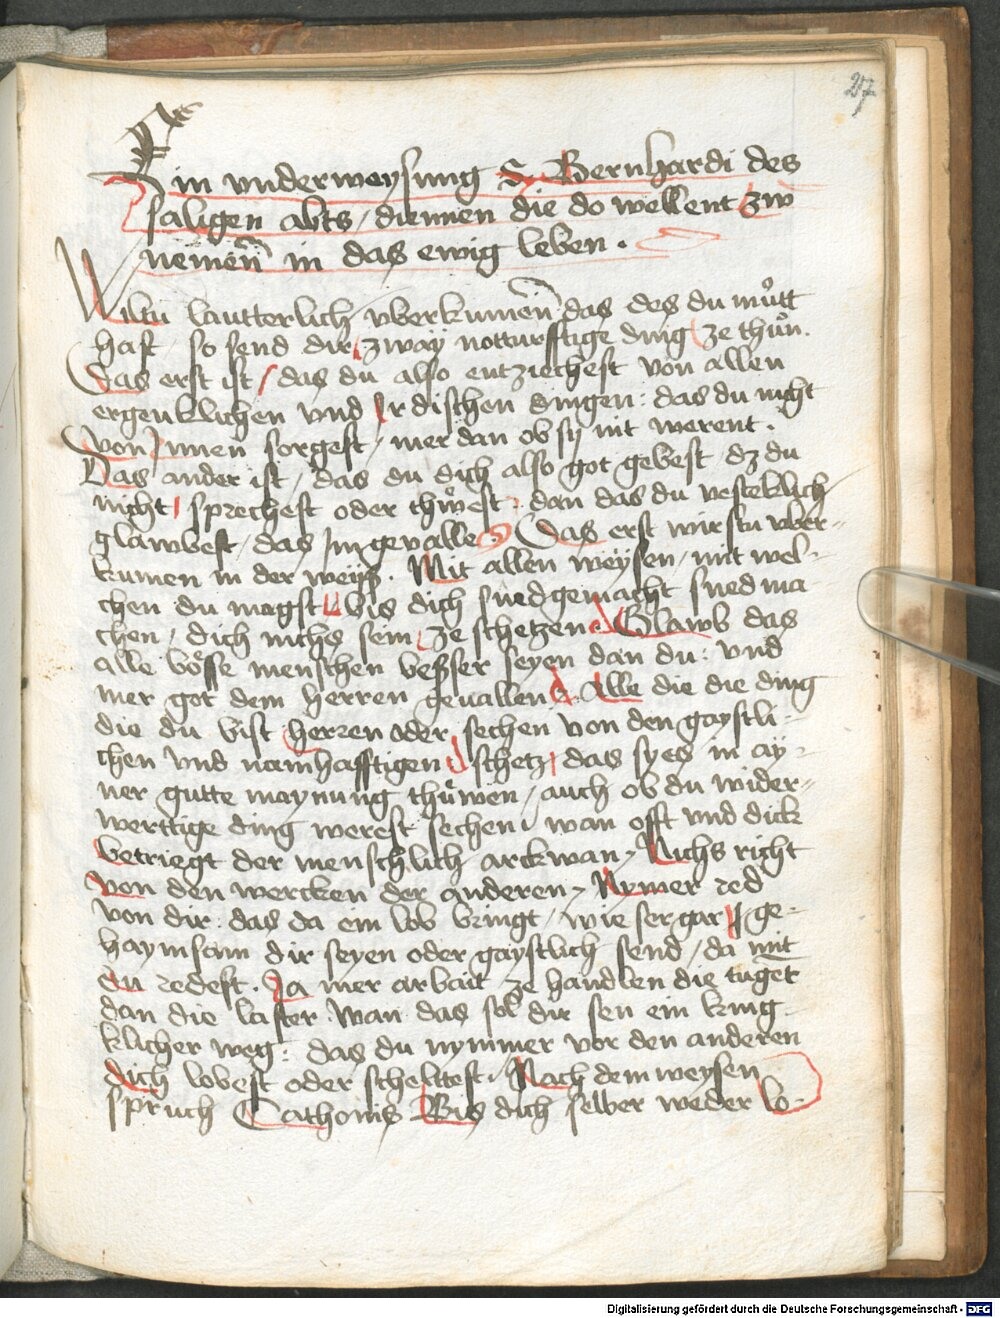 27
Ein vnderweysung S. Bernhardi des
saligen abts / diennen die do wellent zw
nemen̄ in das ewig leben .
Wiltu lautterlich vberkumen̄ das des du můtt
hast / so send dir zway notturfftige ding ze thůn .
Das erst ist / das du also entziechest von allen
ergenklichen vnd Irdischen dingen : das du nicht
von Innen sorgest / mer dan ob sy nit werent .
Das ander ist / das du dich also got gebest dz du
nicht sprechest oder thwest : dan das du vesteklich
glawbest / das Im gevalle . Das erst wirstu vber-
kumen in der weyß . Mit allen weysen / mit wel-
chen du magst bis dich snedgemacht sned ma
chen / dich nichs sein ze schetzen . Glawb das
alle bősse menschen beßser seyen dan du : vnd
mer got dem herren gevallen . Alle die die ding
die du bist herren oder sechen von den gaystli-
chen vnd namhafftigen schetz das sy es in ay-
ner gutte maynung thuwen / auch ob du wider-
werttige ding werest sechen / wan offt vnd dick
betriegt der menschlich arckwan / Nichs richt
von den wercken der anderen / Nymer red
von dir . das da ein lob bringt / wie ser gar ge-
haymsam dir seyen oder gaystlich send / da mit
du redest . Ja mer arbait ze handlen die tuget
dan die laster . Wan das sol dir sen ein king-
klicher weg : das du nymmer vor den anderen
dich lobest oder scheltest . Nach dem weysen
spruch Cathonis Bis dich selber weder lo-
Digitalisierung gefördert durch die Deutsche Forschungsgemeinschaft - DFG